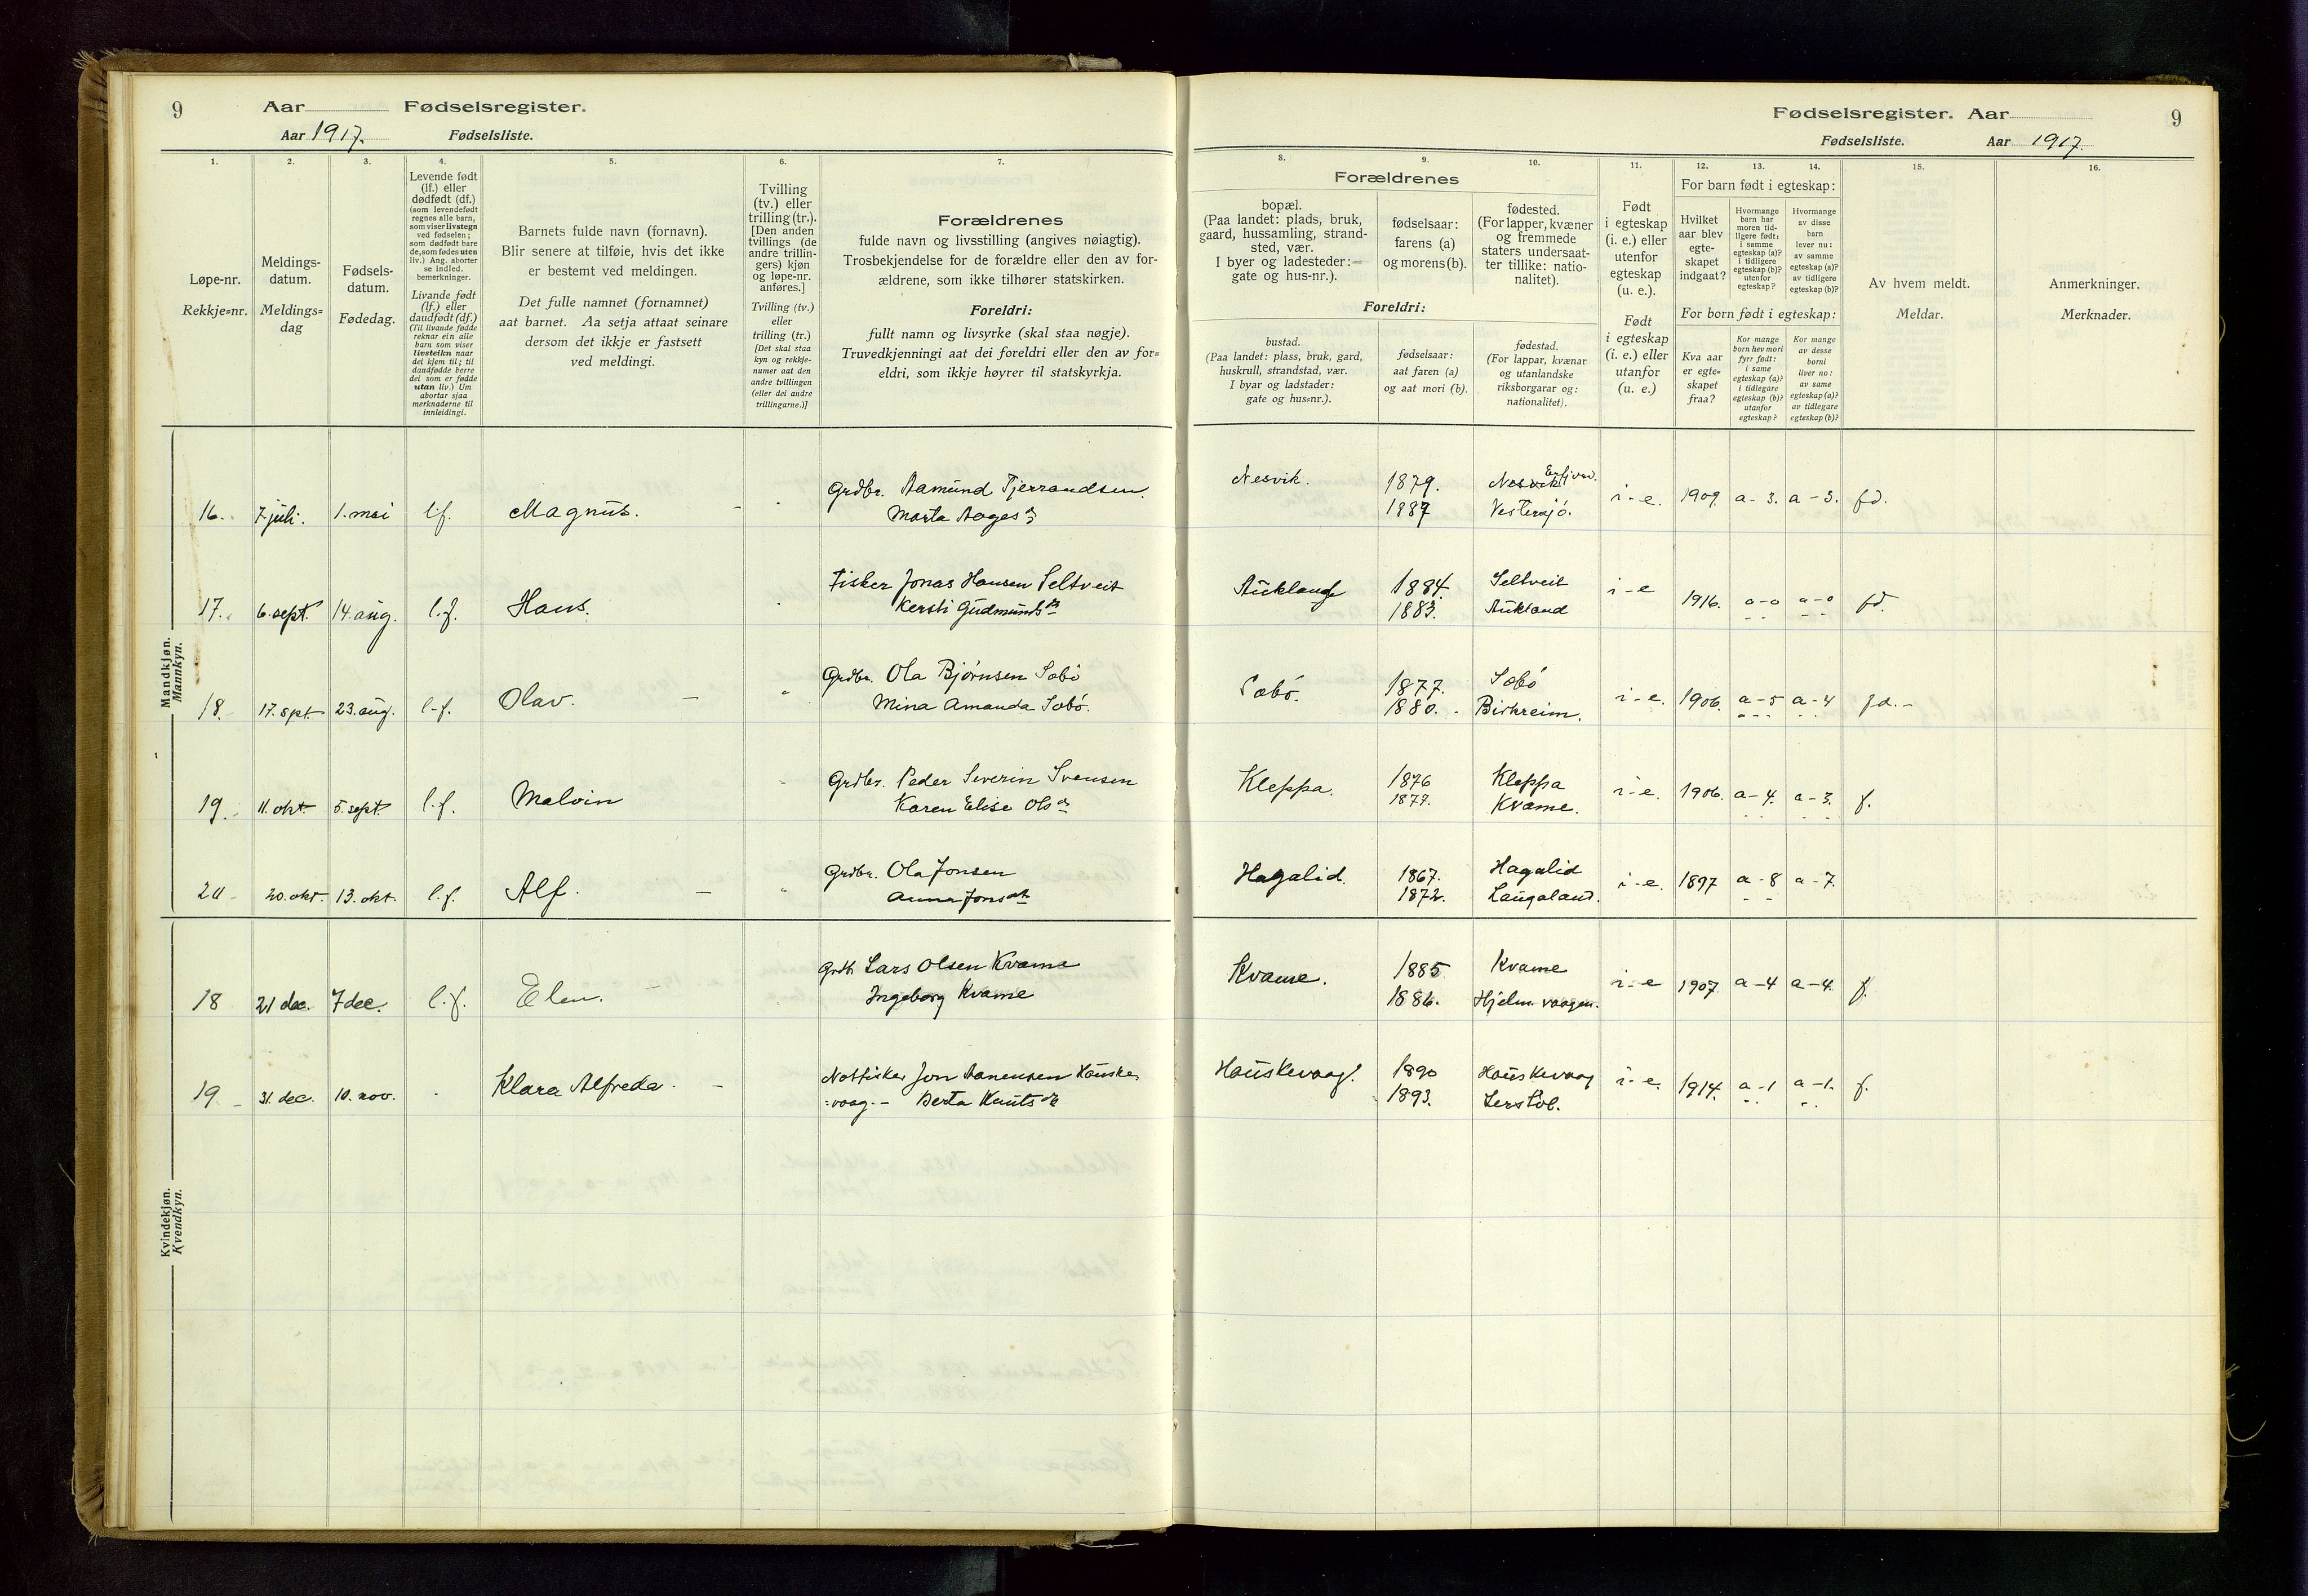 9 Aar Fødselsregister.
Aar 1917. Fødselsliste.
Fødselsregister. Aar 9
Fødselsliste. Aar 1917.
1. 2. 3. 4. 5. 6. 7.
Løpe-nr.
Rekkje=nr.
Meldings-
datum.
Meldings=
dag
Fødsels-
datum.
Fødedag.
Levende født
(lf.) eller
dødfødt (df.)
(som levendefødt
regnes alle barn,
som viser livstegn
ved fødselen;
som dødfødt bare
de, som fødes uten
liv.) Ang. aborter
se indled.
bemerkninger.
Livande født
(lf.) eller
daudfødt (df.)
(Til livande fødde
reknar ein alle
barn som viser
livsteikn naar
dei kjem til; til
daudfødde berre
dei som er fødde
utan liv.) Um
abortar sjaa
merknaderne til
innleidingi.
Barnets fulde navn (fornavn).
Blir senere at tilføie, hvis det ikke
er bestemt ved meldingen.
Det fulle namnet (fornamnet)
aat barnet. Aa setja attaat seinare
dersom det ikkje er fastsett
ved meldingi.
Tvilling
(tv.) eller
trilling (tr.).
[Den anden
tvillings (de
andre trillin-
gers) kjøn
og løpe-nr.
anføres.]
Tvilling (tv.)
eller
trilling (tr.)
[Det skal staa
kyn og rekkje-
numer aat den
andre tvillingen
(eller dei andre
trillingarne.)]
Forældrenes
fulde navn og livsstilling (angives nøiagtig).
Trosbekjendelse for de forældre eller den av for-
ældrene, som ikke tilhører statskirken.
Foreldri:
fullt namn og livsyrke (skal staa nøgje).
Truvedkjenningi aat dei foreldri eller den av for=
eldri, som ikkje høyrer til statskyrkja.
8. 9. 10. 11. 12. 13. 14. 15. 16.
Forældrenes
bopæl.
(Paa landet: plads, bruk,
gaard, hussamling, strand-
sted, vær.
I byer og ladesteder:
gate og hus-nr.).
fødselsaar:
farens (a)
og morens (b).
fødested.
(For lapper, kvæner
og fremmede
staters undersaat-
ter tillike: natio-
nalitet).
Foreldri:
bustad.
(Paa landet: plass, bruk, gard,
huskrull, strandstad, vær.
I byar og ladstader:
gate og hus=nr.).
fødselsaar:
aat faren (a)
og aat mori (b).
fødestad.
(For lappar, kvænar
og utanlandske
riksborgarar og:
nationalitet).
Født
i egteskap
(i. e.) eller
utenfor
egteskap
(u. e.).
Født
i egteskap
(i. e.) eller
utanfor
(u. e.)
For barn født i egteskap:
Hvilket
aar blev
egte-
skapet
indgaat?
Hvormange
barn har
moren tid-
ligere født:
i samme
egteskap (a)?
i tidligere
egteskap (b)?
utenfor
egteskap?
Hvormange
av disse
barn
lever nu:
av samme
egteskap (a)?
av tidligere
egteskap (b)?
For born født i egteskap:
Kva aar
er egte=
skapet
fraa?
Kor mange
born hev mori
fyrr født:
i same
egteskap (a)?
i tidlegare
egteskap (b)?
utanfor
egteskap?
Kor mange
av desse
borni
liver no:
av same
egteskap (a)?
av tidlegare
egteskap (b)?
Av hvem meldt.
Meldar.
Anmerkninger.
Merknader.
Mandkjøn.
Mannkyn.
16. 7. juli. 1. mai l.f. Magnus. Grdbr. Aamund Tjerrandsen
Marta Aages
Nesvik. 1879. i-e. 1909. a-3. a-3. fd.
1887
17. 6. sept. 14. aug. l.f. Hans. Fisker Jonas Hansen Seltveit
Kersti Gudmunds
1884. Seltveit i-e 1916. a-0 a-0 fd.
1883. Aukland
18. 17. sept. 23. aug. l-f. Olav. Grdbr. Ola Bjørnsen Søbø
Mina Amanda Søbø.
Søbø. 1877. Søbø i-e. 1906. a-5 a-4 fd.
1880. Birkreim.
19. 11. okt. 5. sept. l.f. Malvin Grdbr. Peder Severin Svensen
Karen Elise Ols
Kleppa. 1876 Kleppa i-e. 1906. a-4. a-3. f.
1877. Kvame.
20 20. okt. 13. okt. l.f. Alf. Grdbr. Ola Jonsen
Anna Jons
Hagalid. 1867. Hagalid i-e. 1897 a-8 a-7.
1872. Laugaland.
Kvindekjøn.
Kvendkyn.
18 21 dec. 7 dec. l.f. Elen. Lars Olsen Kvame
Ingeborg Kvame
Kvame. 1885 Kvame i-e 1907 a-4 a-4 f.
1886. Hjelmvaagen.
19 31. dec. 10. nov. Klara Alfreda. Notfisker Jon Aanensen Hauske
vaag.- Berta Knuts
1890 Hauskevaag i-e. 1914. a-1 a-1. f.
1893.